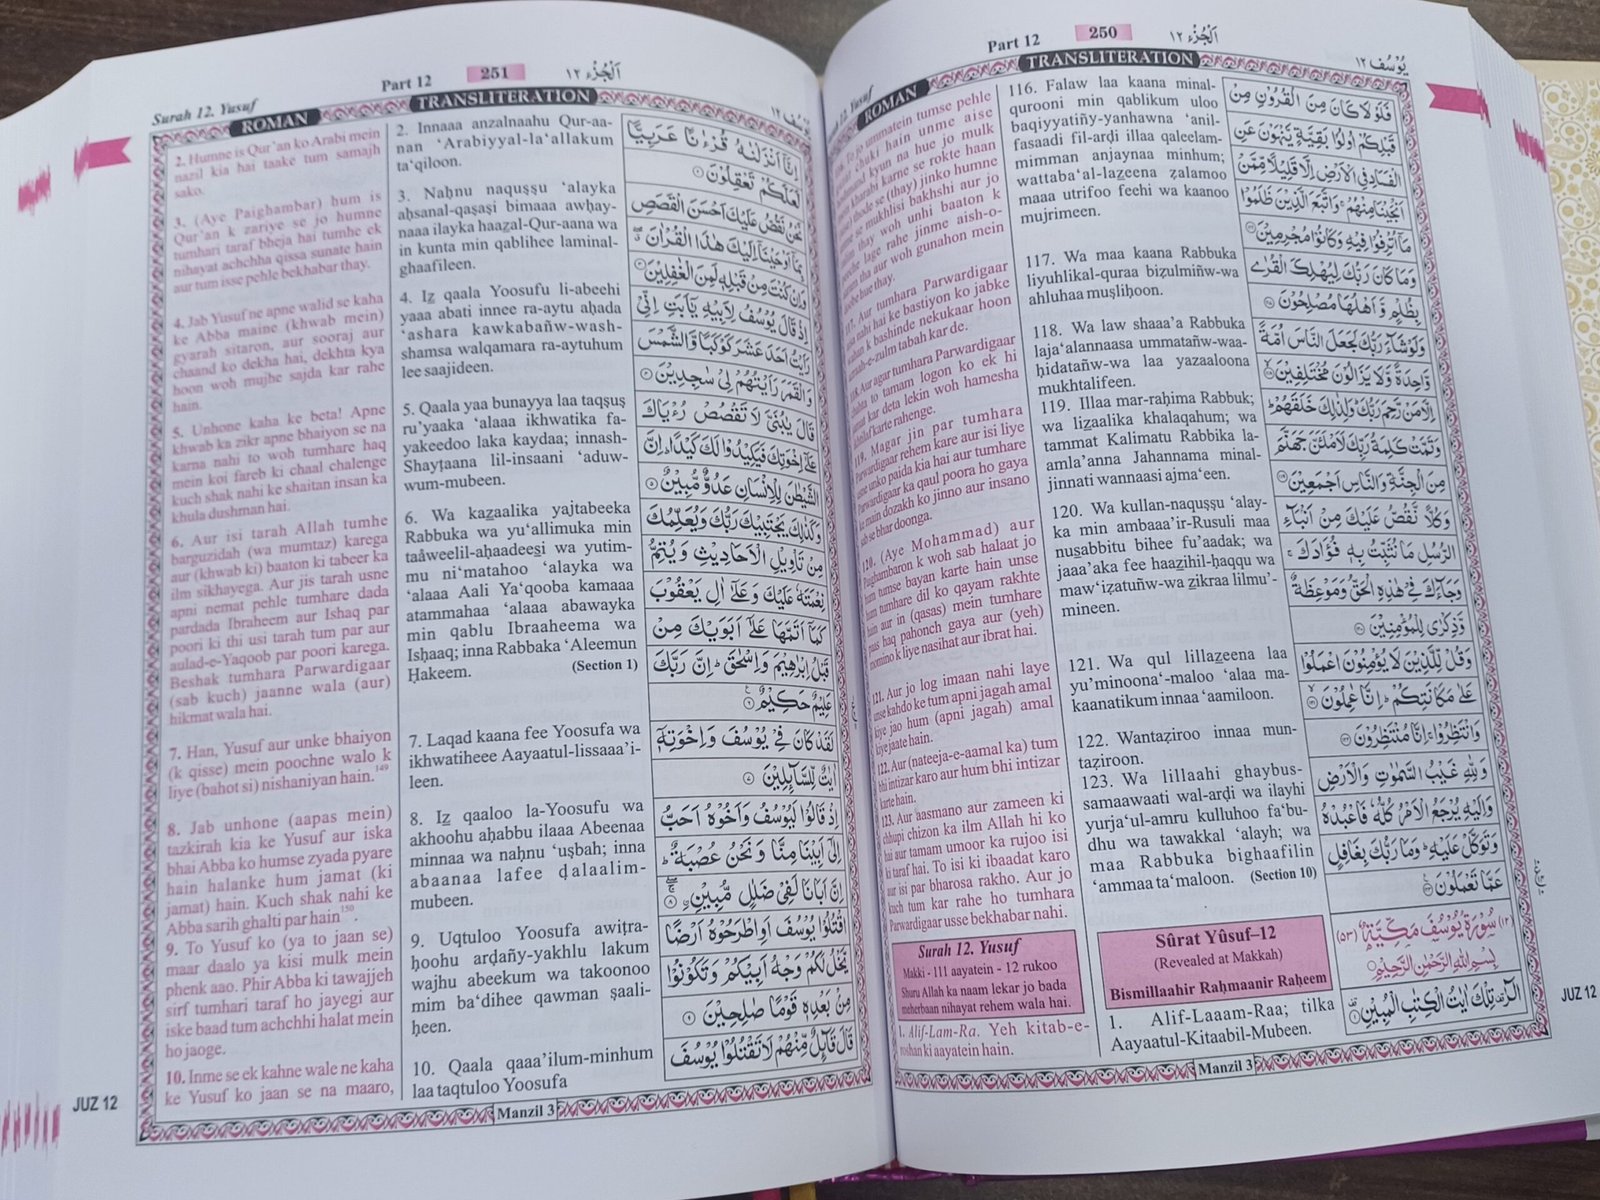 Part 12 250 اَلْجُزْء ١٢
يُوْسُف ١٢
Yusuf
ROMAN
TRANSLITERATION
فَلَوْلَا كَانَ مِنَ الْقُرُوْنِ مِنْ
قَبْلِكُمْ اُولُوْا بَقِيَّةٍ يَّنْهَوْنَ عَنِ
الْفَسَادِ فِى الْاَرْضِ اِلَّا قَلِيْلًا مِّمَّنْ
اَنْجَيْنَا مِنْهُمْ ۚ وَاتَّبَعَ الَّذِيْنَ ظَلَمُوْا
مَآ اُتْرِفُوْا فِيْهِ وَكَانُوْا مُجْرِمِيْنَ ۝
وَمَا كَانَ رَبُّكَ لِيُهْلِكَ الْقُرٰى
بِظُلْمٍ وَّ اَهْلُهَا مُصْلِحُوْنَ ۝
وَلَوْ شَآءَ رَبُّكَ لَجَعَلَ النَّاسَ اُمَّةً
وَّاحِدَةً وَّلَا يَزَالُوْنَ مُخْتَلِفِيْنَ ۝
اِلَّا مَنْ رَّحِمَ رَبُّكَ ؕ وَلِذٰلِكَ خَلَقَهُمْ ؕ
وَتَمَّتْ كَلِمَةُ رَبِّكَ لَاَمْلَـَٔنَّ جَهَنَّمَ
مِنَ الْجِنَّةِ وَالنَّاسِ اَجْمَعِيْنَ ۝
وَكُلًّا نَّقُصُّ عَلَيْكَ مِنْ اَنْۢبَآءِ
الرُّسُلِ مَا نُثَبِّتُ بِهٖ فُؤَادَكَ ۚ
وَجَآءَكَ فِىْ هٰذِهِ الْحَقُّ وَمَوْعِظَةٌ
وَّذِكْرٰى لِلْمُؤْمِنِيْنَ ۝
وَقُلْ لِّلَّذِيْنَ لَا يُؤْمِنُوْنَ اعْمَلُوْا
عَلٰى مَكَانَتِكُمْ ؕ اِنَّا عٰمِلُوْنَ ۝
وَانْتَظِرُوْا ۚ اِنَّا مُنْتَظِرُوْنَ ۝
وَلِلّٰهِ غَيْبُ السَّمٰوٰتِ وَالْاَرْضِ
وَاِلَيْهِ يُرْجَعُ الْاَمْرُ كُلُّهٗ فَاعْبُدْهُ
وَتَوَكَّلْ عَلَيْهِ ؕ وَمَا رَبُّكَ بِغَافِلٍ
عَمَّا تَعْمَلُوْنَ ۝
(١٢) سُوْرَةُ يُوْسُفَ مَكِّيَّةٌ (٥٣)
بِسْمِ اللّٰهِ الرَّحْمٰنِ الرَّحِيْمِ
الٓرٰ ۚ تِلْكَ اٰيٰتُ الْكِتٰبِ الْمُبِيْنِ ۝
116. Falaw laa kaana minal-
qurooni min qablikum uloo
baqiyyatiñy-yanhawna ‘anil-
fasaadi fil-arḍi illaa qaleelam-
mimman anjaynaa minhum;
wattaba‘al-laẕeena ẓalamoo
maaa utrifoo feehi wa kaanoo
mujrimeen.
117. Wa maa kaana Rabbuka
liyuhlikal-quraa biẓulmiñw-wa
ahluhaa muṣliḥoon.
118. Wa law shaaa’a Rabbuka
laja‘alannaasa ummatañw-waa-
ḥidatañw-wa laa yazaaloona
mukhtalifeen.
119. Illaa mar-raḥima Rabbuk;
wa liẕaalika khalaqahum; wa
tammat Kalimatu Rabbika la-
amla’anna Jahannama minal-
jinnati wannaasi ajma‘een.
120. Wa kullan-naquṣṣu ‘alay-
ka min ambaaa’ir-Rusuli maa
nuṣabbitu bihee fu’aadak; wa
jaaa’aka fee haaẕihil-ḥaqqu wa
maw‘iẓatuñw-wa ẕikraa lilmu’-
mineen.
121. Wa qul lillaẕeena laa
yu’minoona‘-maloo ‘alaa ma-
kaanatikum innaa ‘aamiloon.
122. Wantaẓiroo innaa mun-
taẓiroon.
123. Wa lillaahi ghaybus-
samaawaati wal-arḍi wa ilayhi
yurja‘ul-amru kulluhoo fa‘bu-
dhu wa tawakkal ‘alayh; wa
maa Rabbuka bighaafilin
‘ammaa ta‘maloon. (Section 10)
Sûrat Yûsuf–12
(Revealed at Makkah)
Bismillaahir Raḥmaanir Raḥeem
1. Alif-Laaam-Raa; tilka
Aayaatul-Kitaabil-Mubeen.
To jo ummatein tumse pehle
chuki hain unme aise
kyun na hue jo mulk
kharabi karne se rokte haan
thode se (thay) jinko humne
se mukhlisi bakhshi aur jo
thay woh unhi baaton k
lage rahe jinme aish-o-
tha aur woh gunahon mein
hue thay.
117. Aur tumhara Parwardigaar
nahi hai ke bastiyon ko jabke
k bashinde nekukaar hoon
-e-zulm tabah kar de.
118. Aur agar tumhara Parwardigaar
to tamam logon ko ek hi
kar deta lekin woh hamesha
karte rahenge.
119. Magar jin par tumhara
Parwardigaar rehem kare aur isi liye
usne unko paida kia hai aur tumhare
Parwardigaar ka qaul poora ho gaya
ke main dozakh ko jinno aur insano
sab se bhar doonga.
120. (Aye Mohammad) aur
Paighambaron k woh sab halaat jo
hum tumse bayan karte hain unse
hum tumhare dil ko qayam rakhte
hain aur in (qasas) mein tumhare
paas haq pahonch gaya aur (yeh)
nomino k liye nasihat aur ibrat hai.
121. Aur jo log imaan nahi laye
unse kahdo ke tum apni jagah amal
kiye jao hum (apni jagah) amal
kiye jaate hain.
122. Aur (nateeja-e-aamal ka) tum
bhi intizar karo aur hum bhi intizar
karte hain.
123. Aur aasmano aur zameen ki
chhupi chizon ka ilm Allah hi ko
hai aur tamam umoor ka rujoo isi
ki taraf hai. To isi ki ibaadat karo
aur isi par bharosa rakho. Aur jo
kuch tum kar rahe ho tumhara
Parwardigaar usse bekhabar nahi.
Surah 12. Yusuf
Makki - 111 aayatein - 12 rukoo
Shuru Allah ka naam lekar jo bada
meherbaan nihayat rehem wala hai.
1. Alif-Lam-Ra. Yeh kitab-e-
roshan ki aayatein hain.
Manzil 3
JUZ 12
Surah 12. Yusuf
Part 12 251 اَلْجُزْء ١٢
ROMAN
TRANSLITERATION
اِنَّآ اَنْزَلْنٰهُ قُرْءٰنًا عَرَبِيًّا
لَّعَلَّكُمْ تَعْقِلُوْنَ ۝
نَحْنُ نَقُصُّ عَلَيْكَ اَحْسَنَ الْقَصَصِ
بِمَآ اَوْحَيْنَآ اِلَيْكَ هٰذَا الْقُرْاٰنَ ۖ
وَاِنْ كُنْتَ مِنْ قَبْلِهٖ لَمِنَ الْغٰفِلِيْنَ ۝
اِذْ قَالَ يُوْسُفُ لِاَبِيْهِ يٰٓاَبَتِ اِنِّىْ
رَاَيْتُ اَحَدَ عَشَرَ كَوْكَبًا وَّالشَّمْسَ
وَالْقَمَرَ رَاَيْتُهُمْ لِىْ سٰجِدِيْنَ ۝
قَالَ يٰبُنَىَّ لَا تَقْصُصْ رُءْيَاكَ
عَلٰٓى اِخْوَتِكَ فَيَكِيْدُوْا لَكَ كَيْدًا ؕ اِنَّ
الشَّيْطٰنَ لِلْاِنْسَانِ عَدُوٌّ مُّبِيْنٌ ۝
وَكَذٰلِكَ يَجْتَبِيْكَ رَبُّكَ وَيُعَلِّمُكَ
مِنْ تَاْوِيْلِ الْاَحَادِيْثِ وَيُتِمُّ
نِعْمَتَهٗ عَلَيْكَ وَعَلٰٓى اٰلِ يَعْقُوْبَ
كَمَآ اَتَمَّهَا عَلٰٓى اَبَوَيْكَ مِنْ
قَبْلُ اِبْرٰهِيْمَ وَاِسْحٰقَ ؕ اِنَّ رَبَّكَ
عَلِيْمٌ حَكِيْمٌ ۝
لَقَدْ كَانَ فِىْ يُوْسُفَ وَاِخْوَتِهٖٓ
اٰيٰتٌ لِّلسَّآئِلِيْنَ ۝
اِذْ قَالُوْا لَيُوْسُفُ وَاَخُوْهُ اَحَبُّ
اِلٰٓى اَبِيْنَا مِنَّا وَنَحْنُ عُصْبَةٌ ؕ
اِنَّ اَبَانَا لَفِىْ ضَلٰلٍ مُّبِيْنٍ ۝
اقْتُلُوْا يُوْسُفَ اَوِ اطْرَحُوْهُ اَرْضًا
يَّخْلُ لَكُمْ وَجْهُ اَبِيْكُمْ وَتَكُوْنُوْا
مِنْۢ بَعْدِهٖ قَوْمًا صٰلِحِيْنَ ۝
قَالَ قَآئِلٌ مِّنْهُمْ لَا تَقْتُلُوْا يُوْسُفَ
2. Innaaa anzalnaahu Qur-aa-
nan ‘Arabiyyal-la‘allakum
ta‘qiloon.
3. Naḥnu naquṣṣu ‘alayka
aḥsanal-qaṣaṣi bimaaa awḥay-
naaa ilayka haaẕal-Qur-aana wa
in kunta min qablihee laminal-
ghaafileen.
4. Iẕ qaala Yoosufu li-abeehi
yaaa abati innee ra-aytu aḥada
‘ashara kawkabañw-wash-
shamsa walqamara ra-aytuhum
lee saajideen.
5. Qaala yaa bunayya laa taqṣuṣ
ru’yaaka ‘alaaa ikhwatika fa-
yakeedoo laka kaydaa; innash-
Shayṭaana lil-insaani ‘aduw-
wum-mubeen.
6. Wa kaẕaalika yajtabeeka
Rabbuka wa yu‘allimuka min
taåweelil-aḥaadeeṣi wa yutim-
mu ni‘matahoo ‘alayka wa
‘alaaa Aali Ya‘qooba kamaaa
atammahaa ‘alaaa abawayka
min qablu Ibraaheema wa
Isḥaaq; inna Rabbaka ‘Aleemun
Ḥakeem. (Section 1)
7. Laqad kaana fee Yoosufa wa
ikhwatiheee Aayaatul-lissaaa’i-
leen.
8. Iẕ qaaloo la-Yoosufu wa
akhoohu aḥabbu ilaaa Abeenaa
minnaa wa naḥnu ‘uṣbah; inna
abaanaa lafee ḍalaalim-
mubeen.
9. Uqtuloo Yoosufa awiṭra-
ḥoohu arḍañy-yakhlu lakum
wajhu abeekum wa takoonoo
mim ba‘dihee qawman ṣaali-
ḥeen.
10. Qaala qaaa’ilum-minhum
laa taqtuloo Yoosufa
2. Humne is Qur’an ko Arabi mein
nazil kia hai taake tum samajh
sako.
3. (Aye Paighambar) hum is
Qur’an k zariye se jo humne
tumhari taraf bheja hai tumhe ek
nihayat achchha qissa sunate hain
aur tum isse pehle bekhabar thay.
4. Jab Yusuf ne apne walid se kaha
ke Abba maine (khwab mein)
gyarah sitaron, aur sooraj aur
chaand ko dekha hai, dekhta kya
hoon woh mujhe sajda kar rahe
hain.
5. Unhone kaha ke beta! Apne
khwab ka zikr apne bhaiyon se na
karna nahi to woh tumhare haq
mein koi fareb ki chaal chalenge
kuch shak nahi ke shaitan insan ka
khula dushman hai.
6. Aur isi tarah Allah tumhe
barguzidah (wa mumtaz) karega
aur (khwab ki) baaton ki tabeer ka
ilm sikhayega. Aur jis tarah usne
apni nemat pehle tumhare dada
pardada Ibraheem aur Ishaq par
poori ki thi usi tarah tum par aur
aulad-e-Yaqoob par poori karega.
Beshak tumhara Parwardigaar
(sab kuch) jaanne wala (aur)
hikmat wala hai.
7. Han, Yusuf aur unke bhaiyon
(k qisse) mein poochne walo k
liye (bahot si) nishaniyan hain.149
8. Jab unhone (aapas mein)
tazkirah kia ke Yusuf aur iska
bhai Abba ko humse zyada pyare
hain halanke hum jamat (ki
jamat) hain. Kuch shak nahi ke
Abba sarih ghalti par hain150.
9. To Yusuf ko (ya to jaan se)
maar daalo ya kisi mulk mein
phenk aao. Phir Abba ki tawajjeh
sirf tumhari taraf ho jayegi aur
iske baad tum achchhi halat mein
ho jaoge.
10. Inme se ek kahne wale ne kaha
ke Yusuf ko jaan se na maaro,
Manzil 3
JUZ 12